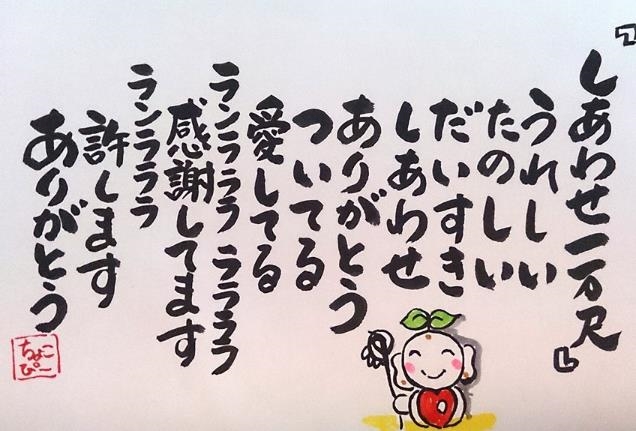 『しあわせ一万尺』
うれしい
たのしい
だいすき
しあわせ
ありがとう
ついてる
愛してる
ランラララ ララララ
感謝してます
ランラララ
許します
ありがとう
ちょこ
ぴー